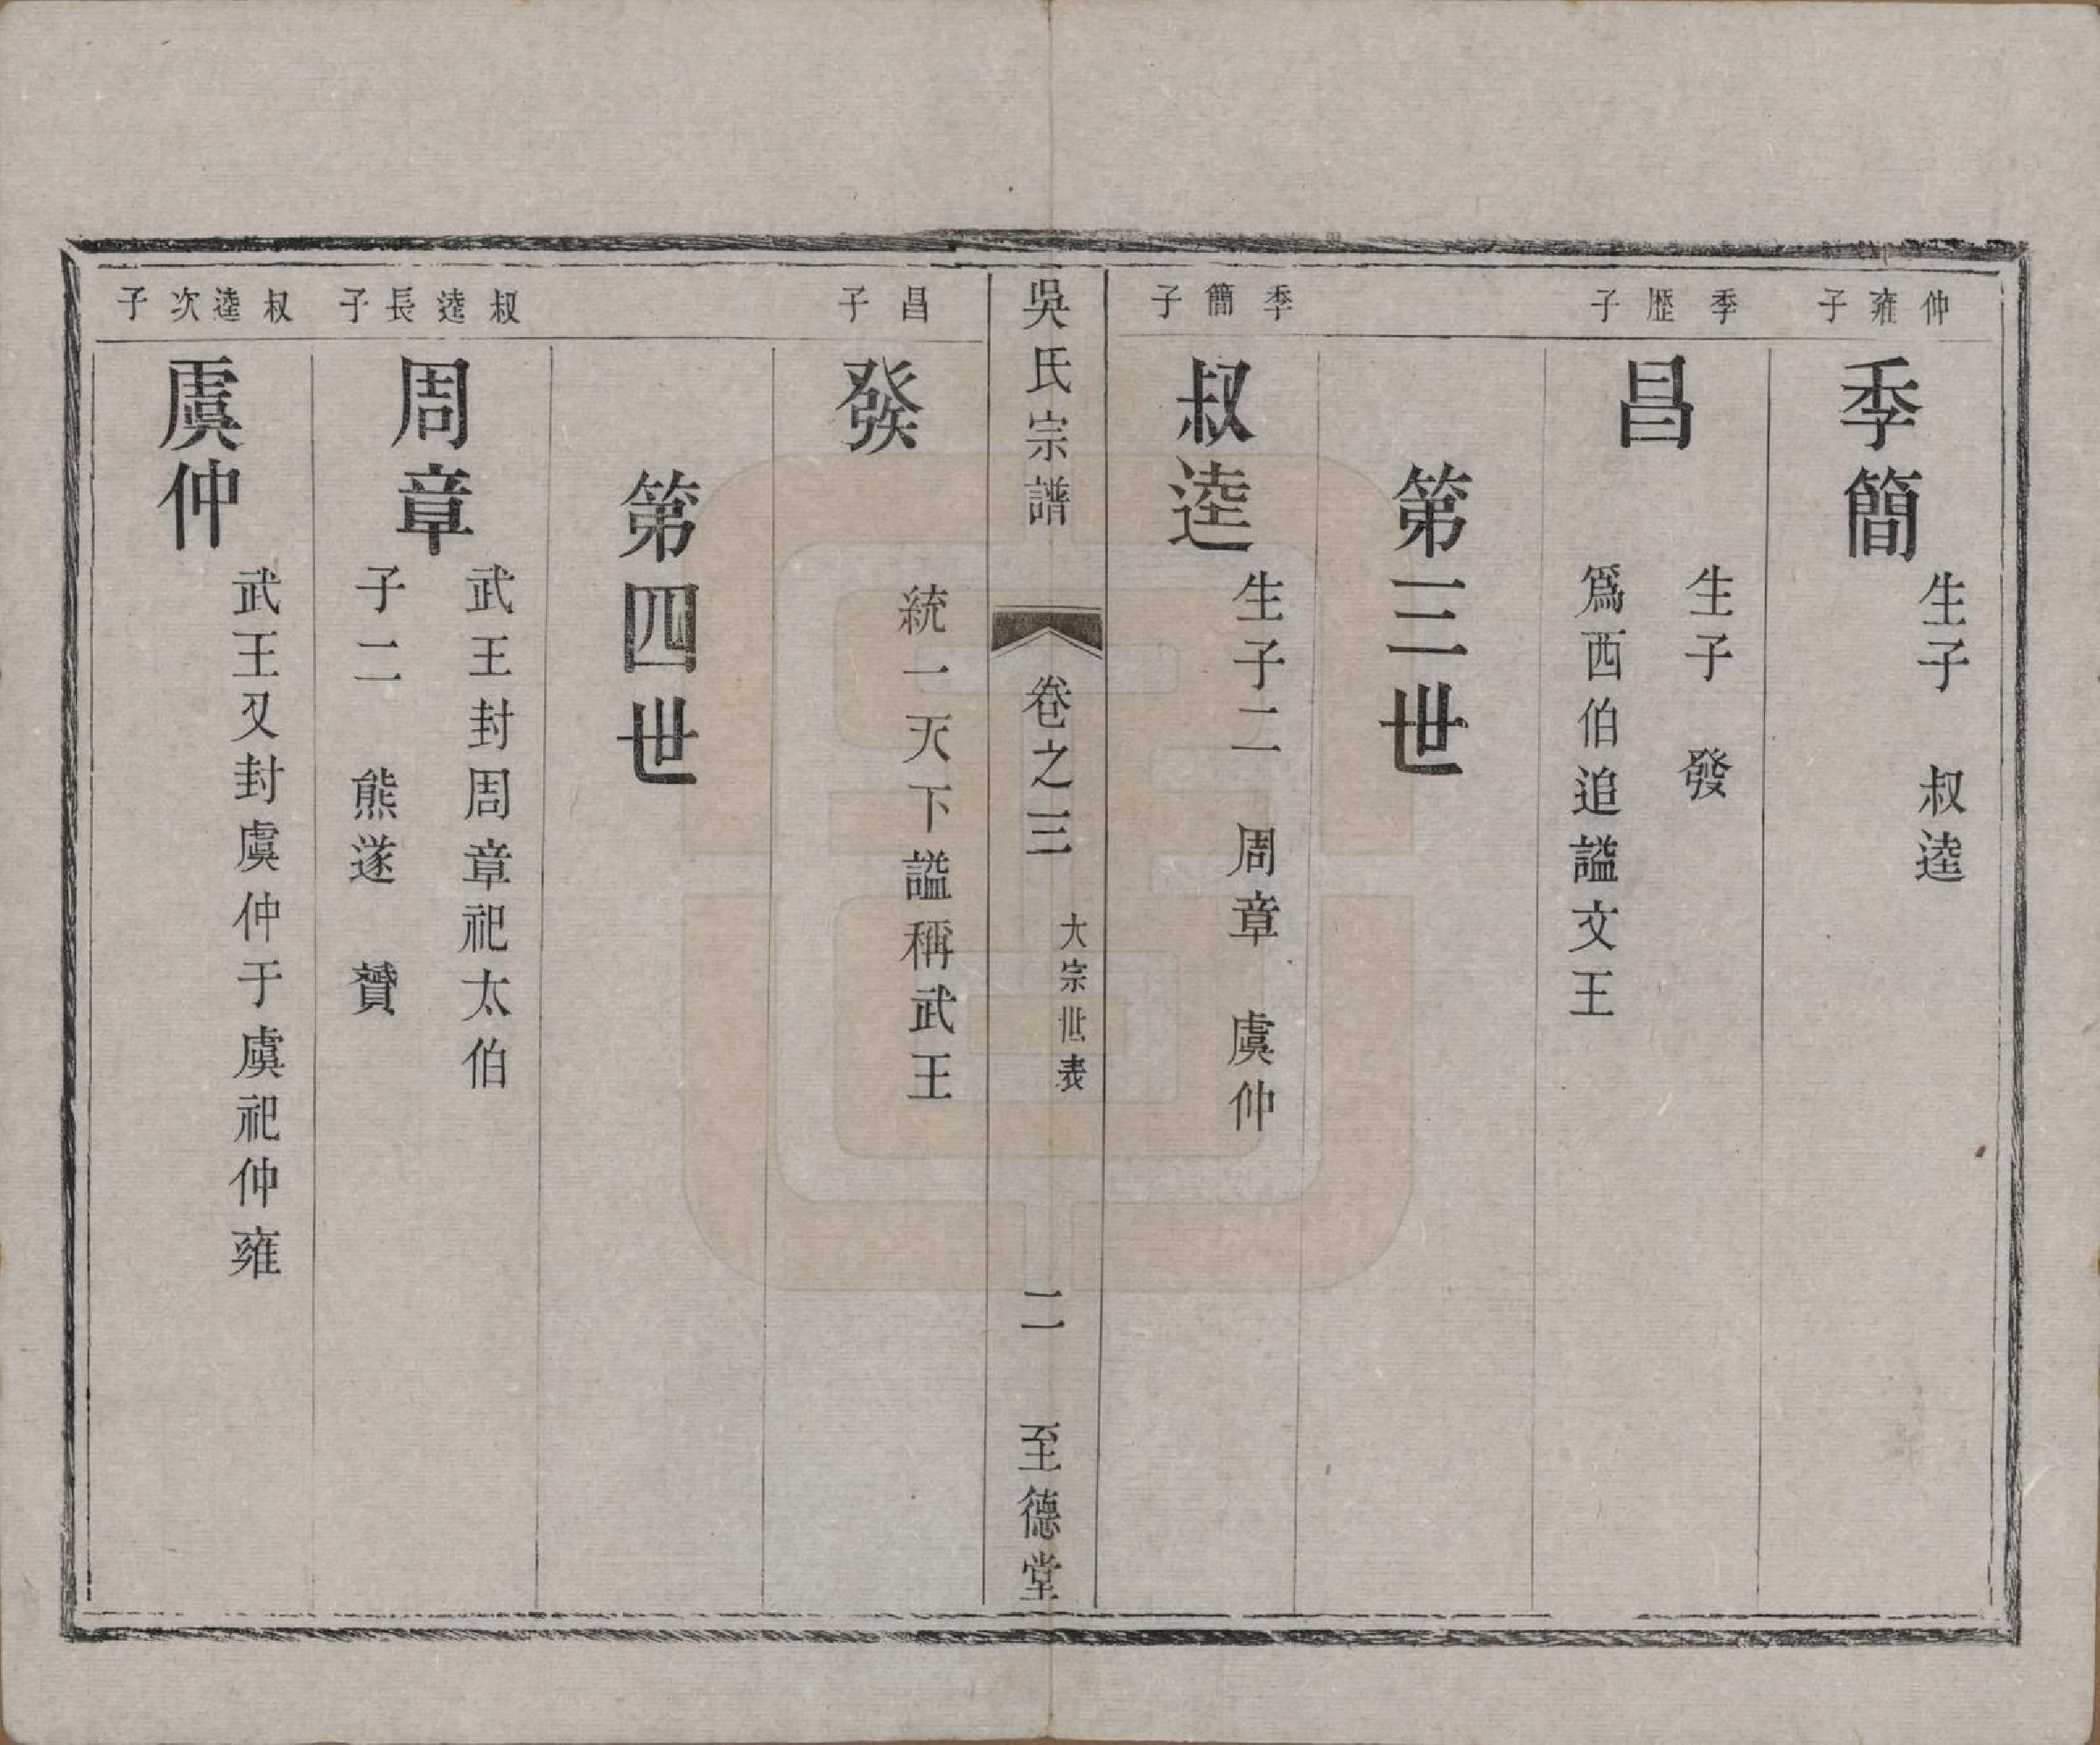 仲雍子
季簡
生子　叔逵
季歴子
昌
生子　發
爲西伯追謚文王
第三世
季簡子
叔逵
生子二　周章　虞仲
吳氏宗譜　卷之三　大宗世表　二　至德堂
昌子
發
統一天下謚稱武王
第四世
叔逵長子
周章
武王封周章祀太伯
子二　熊遂　贊
叔逵次子
虞仲
武王又封虞仲于虞祀仲雍